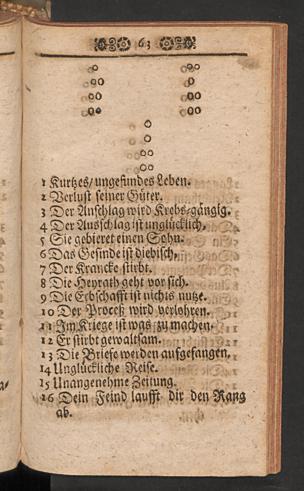 63
1 Kurtzes/ ungesundes Leben.
2 Verlust seiner Güter.
3 Der Anschlag wird Krebs-gängig.
4 Der Ausschlag ist unglücklich,
5 Sie gebieret einen Sohn.
6 Das Gesinde ist diebisch,
7 Der Krancke stirbt.
8 Die Heyrath geht vor sich.
9 Die Erbschafft ist nichts nutze.
10 Der Proceß wird verlohren.
11 Im Kriege ist was zu machen.
12 Er stirbt gewaltsam.
13 Die Briefe werden aufgefangen,
14 Unglückliche Reise.
15 Unangenehme Zeitung.
16 Dein Feind laufft dir den Rang
ab.